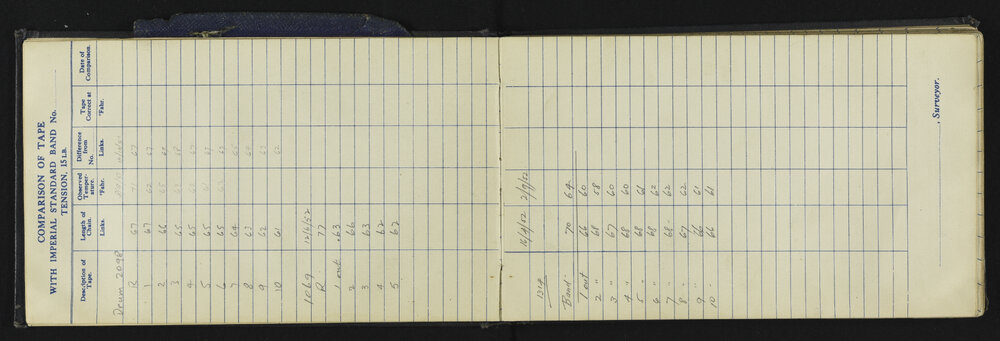 COMPARISON OF TAPE
WITH IMPERIAL STANDARD BAND No.
TENSION, 15 LB.
Description of Tape. Length of Chain. Observed Temperature. Difference from No. Tape Correct at Date of Comparison.
Links. °Fahr. Links. °Fahr.
Drum 2098
R 67 71 67
1 67 62 67
2 66 65
3 65
4 65 67
5 65 61
6 65 67
7 64
8 63
9 62
10 61 62
1069 12/6/52
R. 77
1 out .63
2 66
3 63
4 62
5 62
1314 2/9/52
Band. 70 64
1 out 66 60
2 " 68 58
3 " 67 60
4 " 68 60
5 " 68 61
6 " 68 62
7 " 68. 62
8 " 67 62
9 " 66 61
10 " 66 61
, Surveyor.